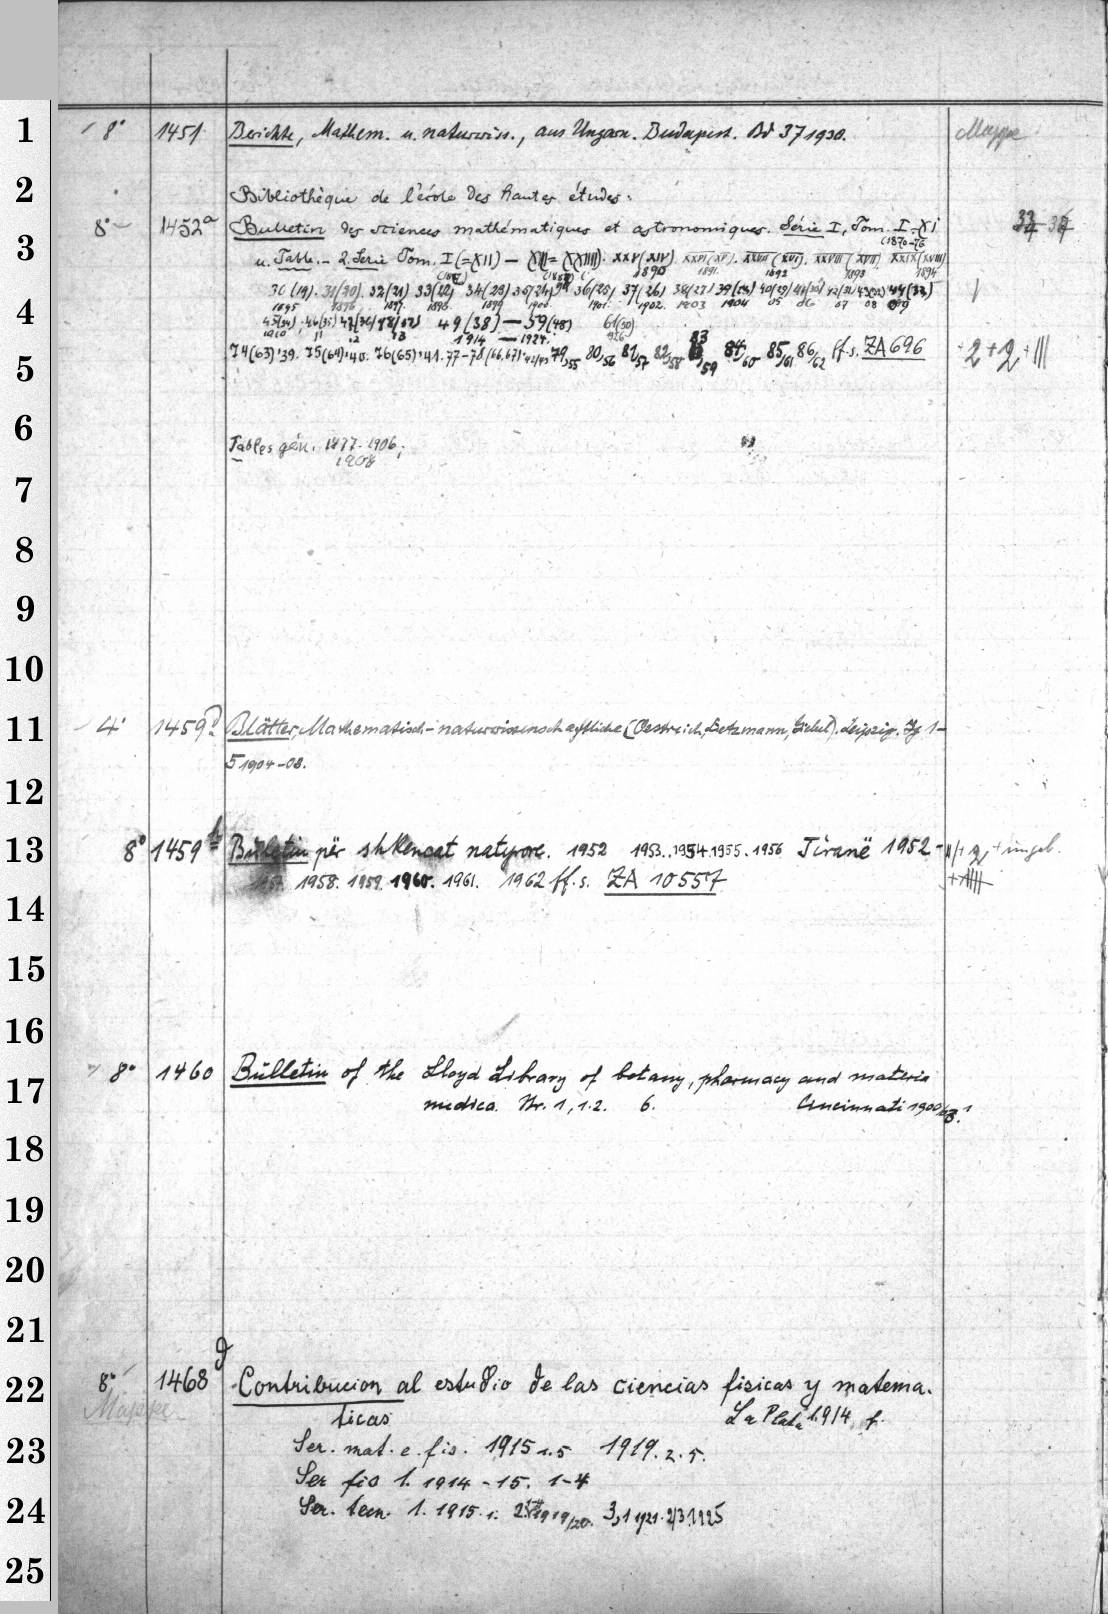 1 8° 1451 Berichte, Mathem. u. naturwiss., aus Ungarn. Budapest. Bd 37 1930. Mappe
2 Bibliothèque de l'école des hautes études:
8° 1452a Bulletin des sciences mathématiques et astronomiques. Série I, Tom. I-XI (1870-76
3 u. Table. - 2. Serie Tom. I (=XII) — XIII(= XXIIII). XXV(XIV) 1890 XXVI(XV). 1891. XXVII(XVI). 1892 XXVIII(XVII). 1893 XXIX(XVIII) 1894
30 (19). 1895 31(20). 1896 32(21) 1897. 33(22) 1898 34(23) 1899 35(24) 1900 36(25) 1901. 37(26) 1902. 38(27) 1903 39(28) 1904 40(29) 05 41(30) 06 42(31) 07 43(32) 08 44(33) 09
4 45(34) 1910 46(35) 11 47(36) 12 48(37) 13 49(38) — 59(48) 1914 — 1924. 61(50) 1926
5 74(63)'39. 75(64)'40. 76(65)'41. 77-78(66.67)'42/43 79/55 80/56 81/57 82/58 83/59 84/60 85/61 86/62 ff. s. ZA 696 + 2 + 2 + |||
6 Tables gén. 1877-1906;
1908
7
8
9
10
11 4° 1459a Blätter, Mathematisch-naturwissenschaftliche (Oestreich, Lietzmann, ). Leipzig. Jg 1-
5 1904-08.
12
13 8° 1459b Bulletin për shkencat natyrore. 1952 1953. 1954. 1955. 1956 Tiranë 1952-
1957. 1958. 1959. 1960. 1961. 1962 ff. s. ZA 10557
14
15
16
17 8° 1460 Bulletin of the Lloyd Library of botany, pharmacy and materia
medica. Nr. 1, 1.2. 6. Cincinnati 1900/03.
18
19
20
21
22 8° 1468g Contribucion al estudio de las ciencias fisicas y matema-
Mappe ticas La Plata 1914 f.
23 Ser. mat. e. fis. 1915 1.5 1919. 2. 5.
Ser fis 1. 1914 - 15. 1-4
24 Ser. tecn. 1. 1915. 1. 2. 1919/20. 3,1 1921. 2/3 1925
25